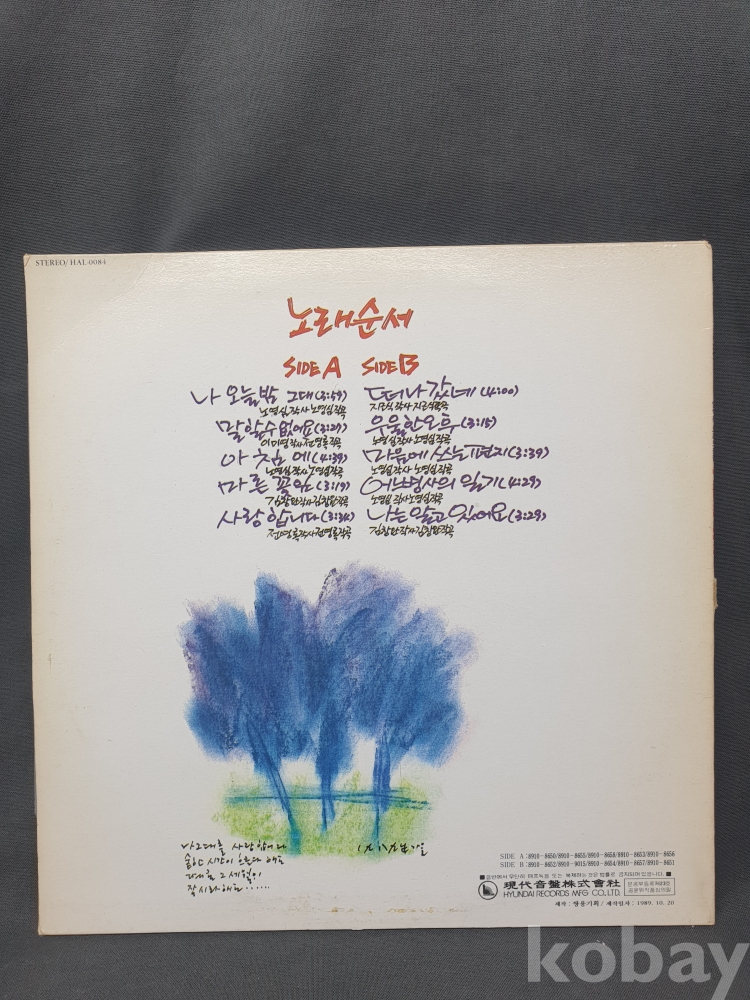 STEREO/HAL-0084
노래순서
SIDE A SIDE B
나 오늘밤 그대(3:59)
노영심작사 노영심작곡
말할수없어요(3:27)
이미영작사전영록작곡
아침에(4:39)
노영심작사 노영심작곡
마른 꽃잎(3:19)
김창완작사김창완작곡
사랑합니다(3:34)
전영록작사전영록작곡
떠나갔네(4:00)
지근식작사 지근식작곡
우울한오후(3:15)
노영심작사 노영심작곡
마음에 쓰는편지(3:39)
노영심작사 노영심작곡
어느병사의 일기(4:29)
노영심 작사노영심작곡
나는 알고 있어요(3:29)
김창완작사김창완작곡
나 그대를 사랑합니다
시간이 흐른다 해도
SIDE A:8910-8650/8910-8655/8910-8658/8910-8653/8910-8656
SIDE B:8910-8652/8910-9015/8910-8654/8910-8657/8910-8651
■음반에서 무단히 테프녹음 또는 복제하는 것은 법률로 금지되어 있습니다.■
現代音盤株式會社
HYUNDAI RECORDS MFG CO.,LTD.
제작: 쌍용기획/제작일자: 1989. 10. 20
kobay